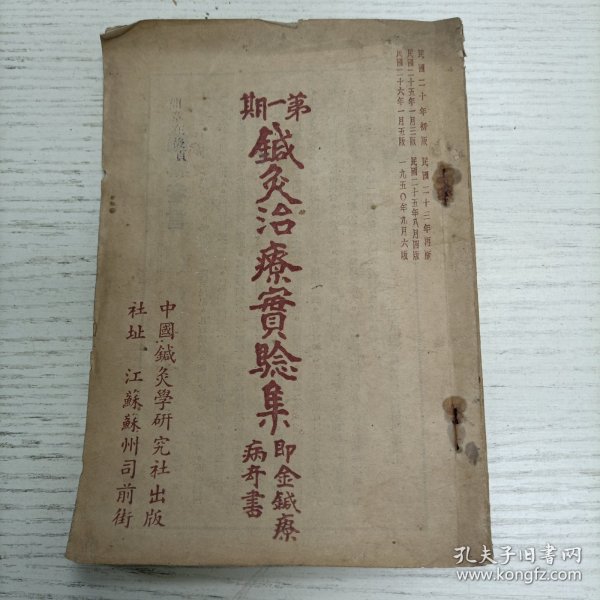 民國二十年初版 民國二十三年再版
民國二十五年一月三版 民國二十五年八月四版
民國二十六年一月五版 一九五〇年九月六版
第一期
鍼灸治療實驗集
即金鍼療
病奇書
中國鍼灸學研究社出版
社址 江蘇蘇州司前街
孔夫子旧书网
www.kongfz.com